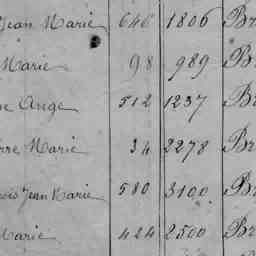 Jean Marie 646 1806 Br
Marie 98 989 Br
Ange 512 1237 Br
rre Marie 34 2278 Br
Jean Marie 580 3100 Br
Marie 424 2500 Br